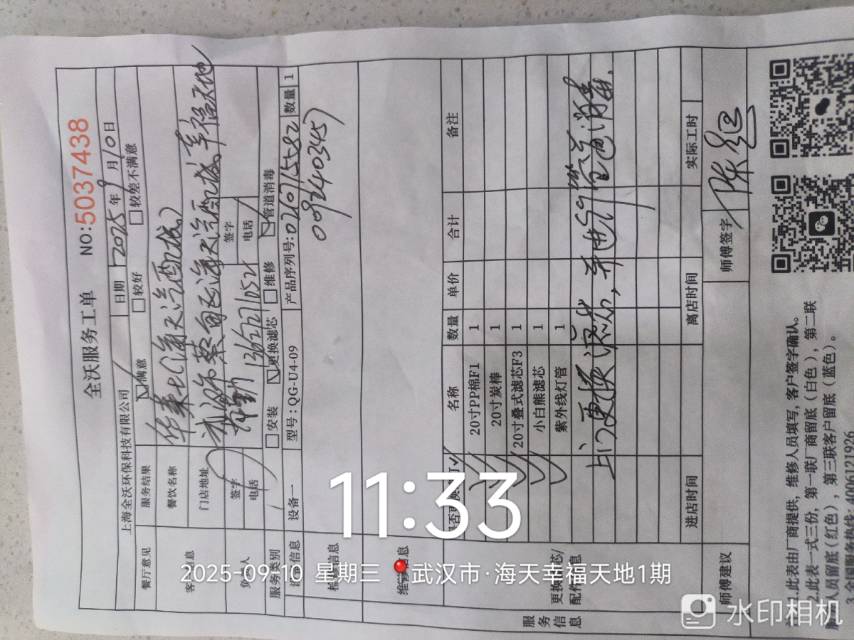 全沃服务工单 NO:5037438
上海全沃环保科技有限公司 日期 2025年9月10日
餐厅意见 服务结果 ☑满意 □较好 □较差不满意
餐饮名称 华莱士(海天汽配城)
门店地址
签字 电话 13627210521 签字 电话
服务类别 □安装 ☑更换滤芯 □维修 ☑管道消毒
设备一 型号:QG-U4-09 产品序列号: 数量 1
092403457
名称 数量 单价 合计 备注
20寸PP棉F1 1
20寸炭棒 1
20寸叠式滤芯F3 1
小白熊滤芯 1
紫外线灯管 1
上门更换滤芯,并进行管道消毒.
进店时间 离店时间 实际工时
师傅建议 师傅签字
1.此表由厂商提供,维修人员填写,客户签字确认。
2.此表一式三份,第一联厂商留底(白色),第二联
人员留底(红色),第三联客户留底(蓝色)。
3.全国服务热线:4006121926
11:33
2025-09-10 星期三 武汉市·海天幸福天地1期
水印相机